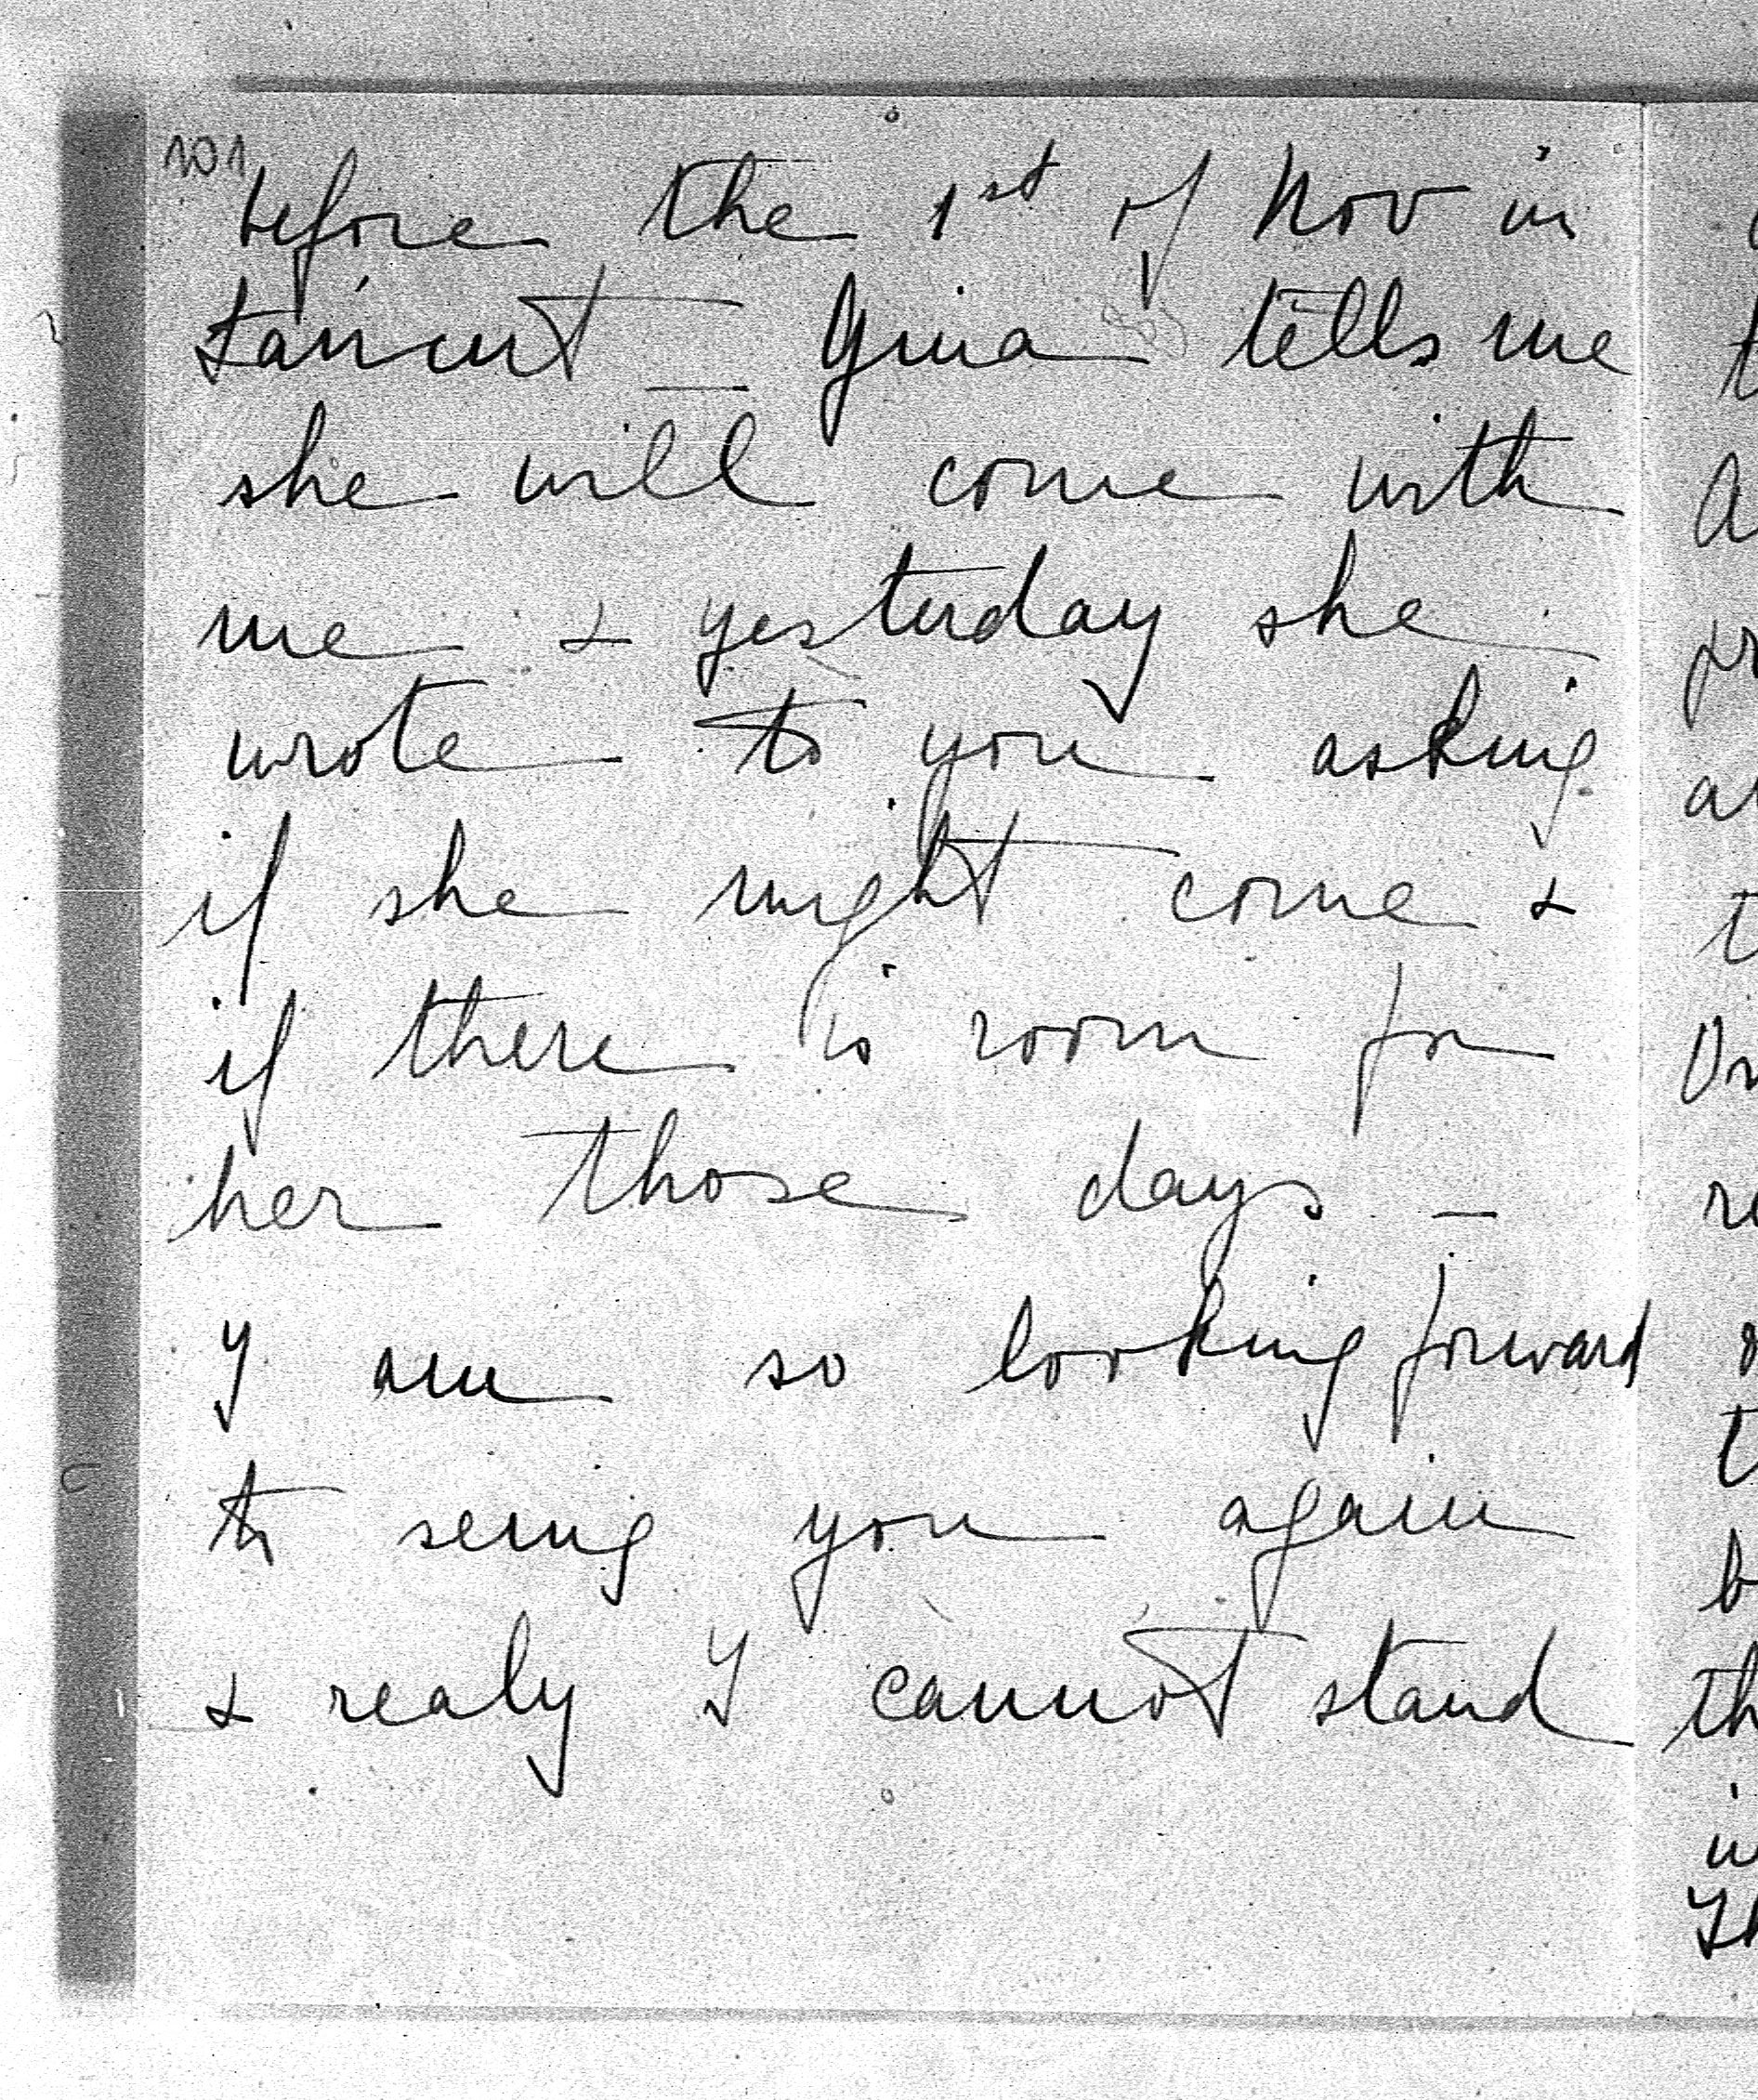 101
before the 1st of Nov in
Łańcut — Gina tells me
she will come with
me & yesterday she
wrote to you asking
if she might come &
if there is room for
her those days —
I am so looking forward
to seing you again
& realy I cannot stand